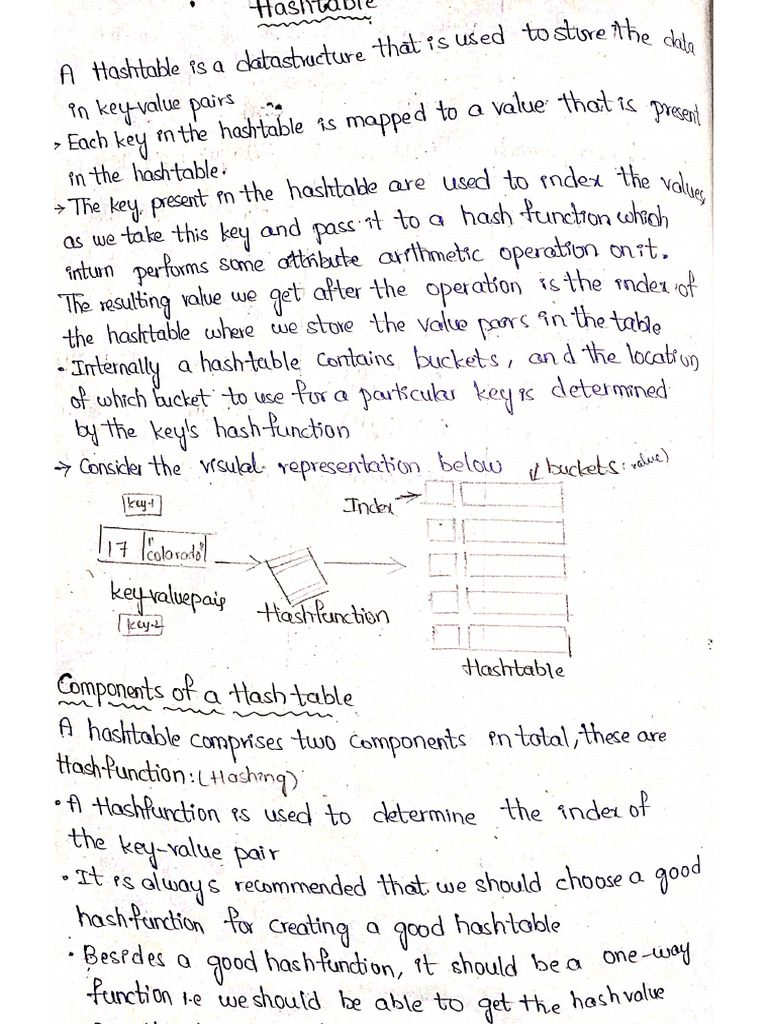 Hashtable
A Hashtable is a datastructure that is used to store the data
in key-value pairs
> Each key in the hashtable is mapped to a value that is present
in the hashtable.
→ The key present in the hashtable are used to index the values,
as we take this key and pass it to a hash function which
inturn performs some attribute arithmetic operation on it.
The resulting value we get after the operation is the index of
the hashtable where we store the value pairs in the table
• Internally a hash-table contains buckets, and the location
of which bucket to use for a particular key is determined
by the key's hash-function
→ Consider the visual representation below
buckets: value)
Index →
key-1
17 "colorado"
key-valuepair
key-2
Hashfunction
Hashtable
Components of a Hash table
A hashtable comprises two components in total, these are
Hashfunction: (Hashing)
• A Hashfunction is used to determine the index of
the key-value pair
• It is always recommended that we should choose a good
hashfunction for creating a good hashtable
• Besides a good hashfunction, it should be a one-way
function i.e we should be able to get the hash value